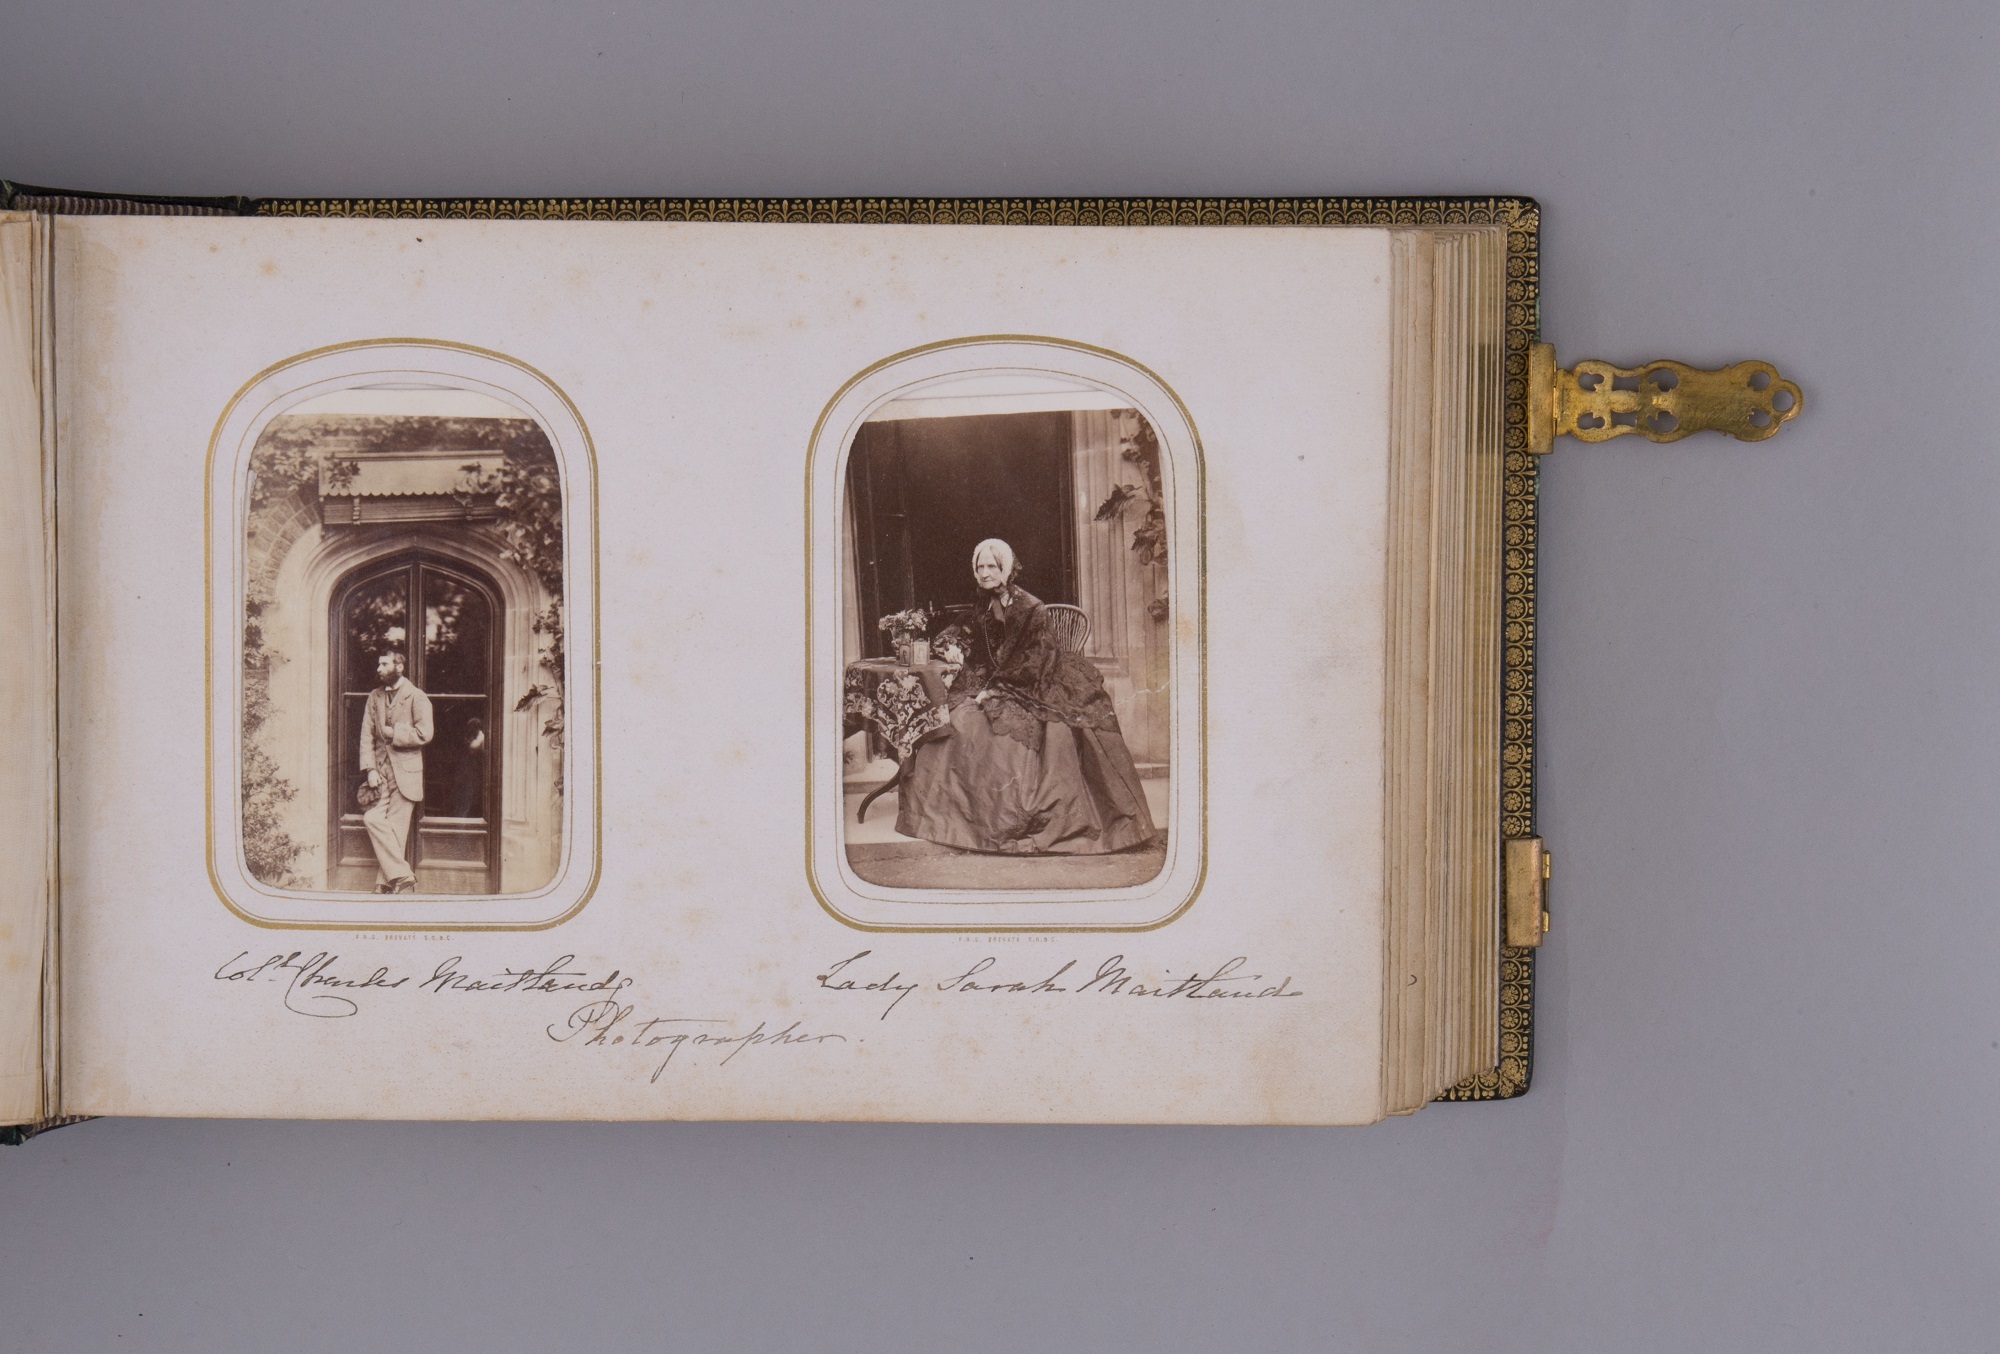 Col.l Charles Maitland
Lady Sarah Maitland
Photographer.